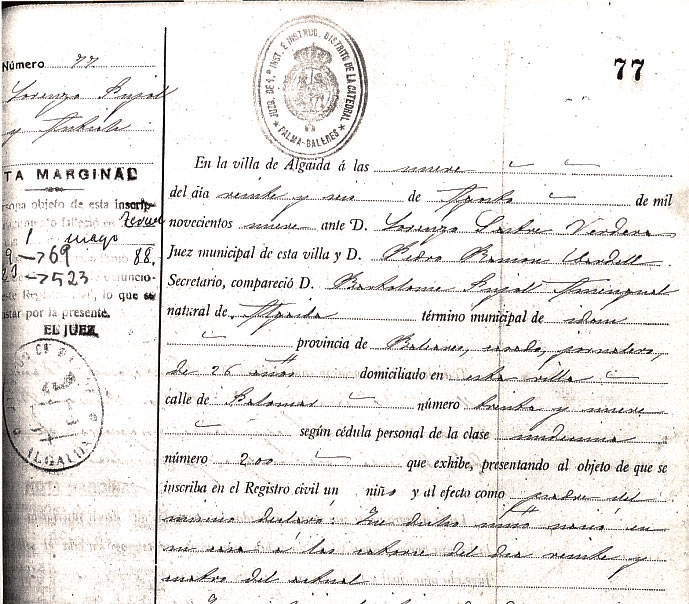 JUZG. DE 1.ª INST. E INSTRUC. DISTRITO DE LA CATEDRAL
★ PALMA-BALERES ★
77
Número 77
Lorenzo Pujoll
y
TA MARGINAL
objeto de esta inscrip-
falleció en
1 mayo
9→69 88
→523
este Registro lo que se
por la presente.
EL JUEZ,
ALGAIDA
En la villa de Algaida á las nueve
del día veinte y seis de Agosto de mil
novecientos nueve ante D. Lorenzo Sastre Verdera
Juez municipal de esta villa y D. Pedro Ramon
Secretario, compareció D. Bartolomé Pujoll Amengual
natural de Algaida término municipal de idem
provincia de Baleares, casado, jornalero,
de 26 años domiciliado en esta villa
calle de Palomar número treinta y nueve
según cédula personal de la clase undecima
número 200 que exhibe, presentando al objeto de que se
inscriba en el Registro civil un niño y al efecto como padre del
mismo declaró: Que dicho niño nació en
su casa á las catorce del dia veinte y
cuatro del actual